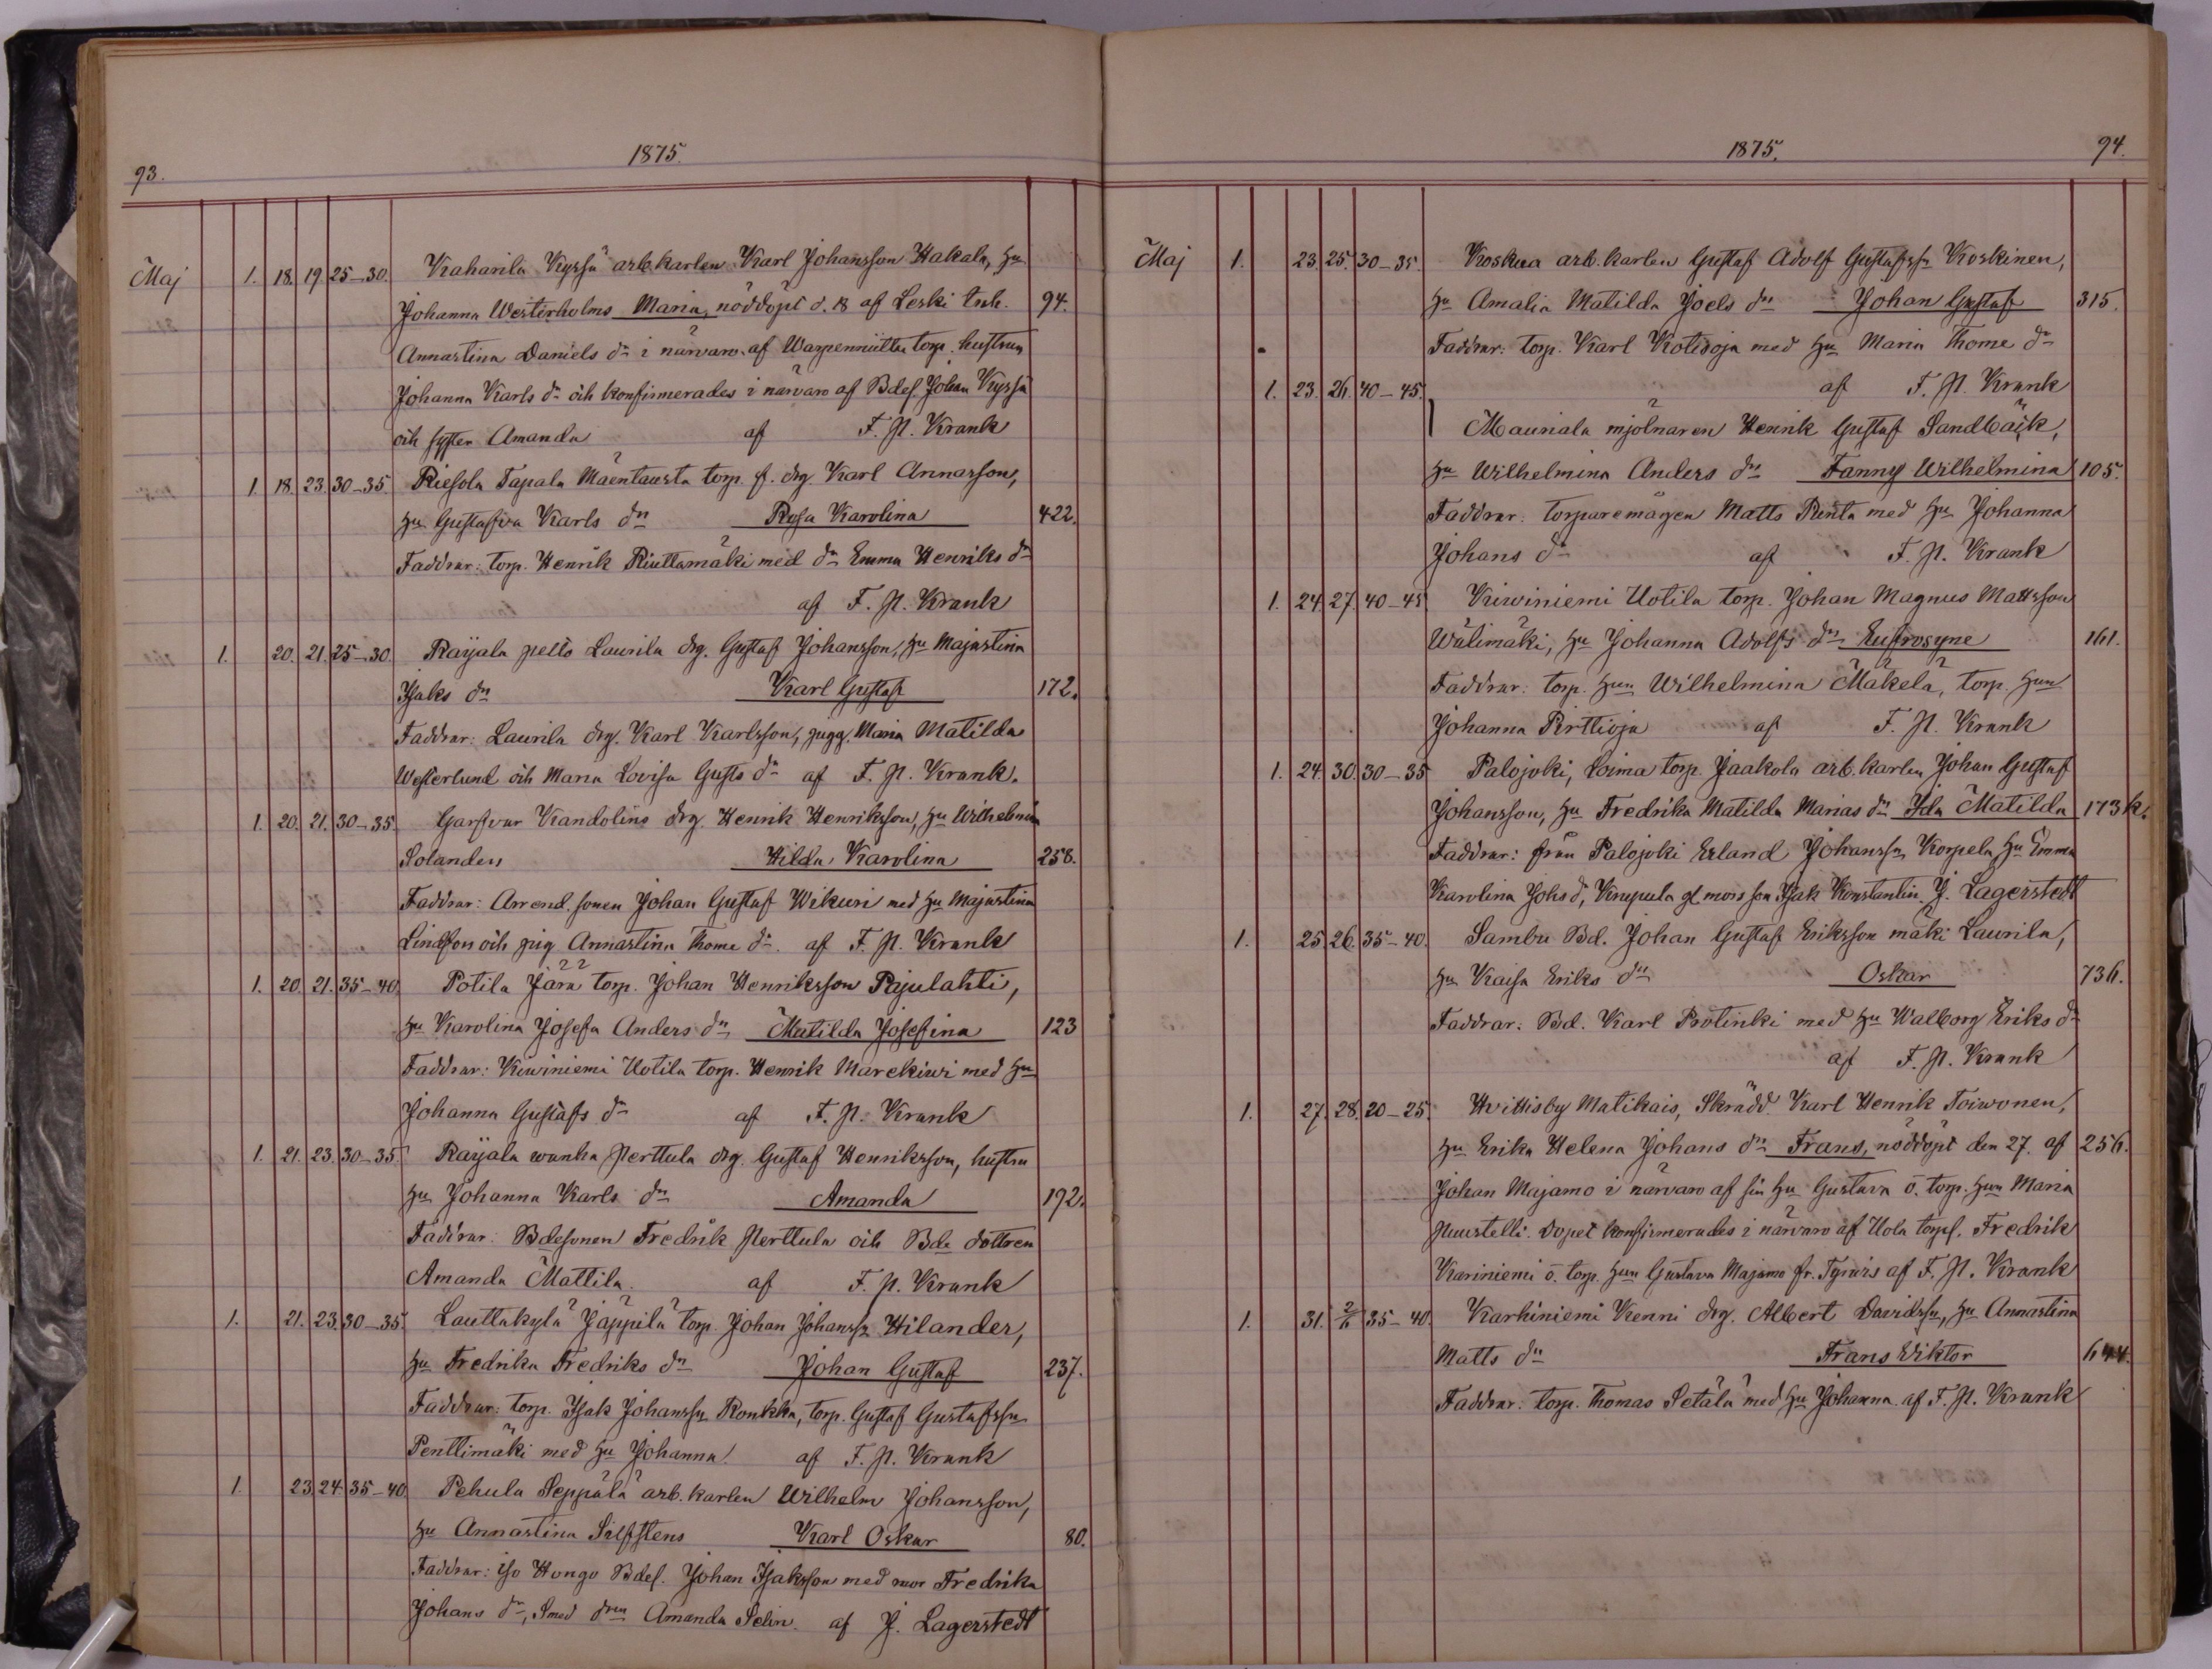 93.
1875.
Maj 1. 18. 19. 25-30. Kaharila Kyssä arb.karlen Karl Johansson Hakala, hu
Johanna Westerholms Maria, nöddöpt d. 18 af Leski Inh. 94.
Annastina Daniels dr i närvaro af torp. hustrun
Johanna Karls dr och konfirmerades i närvaro af Bdes. Johan Kyssä
och syster Amanda af F. H. Krank
1. 18. 23. 30-35. Riesola Tapala Mäentausta torp. f. drg Karl Annasson,
hu Gustafva Karls dr Rosa Karolina 422.
Faddrar: torp. Henrik Riuttamäki med dr Emma Henriks dr
af F. H. Krank
1. 20. 21. 25-30. Raijala pello Laurila drg. Gustaf Johansson, hu Majastina
Isaks dr Karl Gustaf 172.
Faddrar: Laurila drg. Karl Karlsson, pigg. Maria Matilda
Westerlund och Maria Lovisa Gusts dr af F. H. Krank.
1. 20. 21. 30-35. Garfvar Kandolins drg. Henrik Henriksson, hu Wilhelmina
Solanders Hilda Karolina 258.
Faddrar: Arrend. sonen Johan Gustaf Wikuri med hu Majastina
Lindfors och pig. Annastina Thome dr. af F. H. Krank
1. 20. 21. 35-40. Potila Järä torp. Johan Henriksson Pajulahti,
hu Karolina Josefa Anders dr Matilda Josefina 123
Faddrar: Kiwiniemi Uotila torp. Henrik Marekiwi med hu
Johanna Gustafs dr af F. H. Krank
1. 21. 23. 30-35. Raijala wanha Perttula drg. Gustaf Henriksson, hustru
hu Johanna Karls dr Amanda 192.
Faddrar: Bdesonen Fredrik Perttula och Bde dottren
Amanda Mattila. af F. H. Krank
1. 21. 23. 30-35. Lauttakylä Jäppilä torp. Johan Johanssn Hilander,
hu Fredrika Fredriks dr Johan Gustaf 237.
Faddrar: torp. Isak Johanssn Ronkka, torp. Gustaf Gustafssn
Penttimäki med hu Johanna. af F. H. Krank
1. 23. 24. 35-40. Pehula Seppälä arb. karlen Wilhelm Johansson,
hu Annastina Silfstens Karl Oskar 80.
Faddrar: iso Hongo Bdes. Johan Isaksson med mor Fredrika
Johans dr, Smed drn Amanda Selin. af J. Lagerstedt
1875.
94.
Maj 1. 23. 25. 30-35 Koskua arb. karlen Gustaf Adolf Gustafssn Koskinen,
hu Amalia Matilda Joels dr Johan Gustaf 315.
Faddrar: torp. Karl Kotioja med hu Maria Thome dr
af F. H. Krank
1. 23. 26. 40-45. Mauriala mjölnaren Henrik Gustaf Sandbäck,
hu Wilhelmina Anders dr Fanny Wilhelmina 105.
Faddrar: torparemågen Matts Rinta med hu Johanna
Johans dr af F. H. Krank
1. 24. 27. 40-45 Kiwiniemi Uotila torp. Johan Magnus Mattsson
Wälimäki, hu Johanna Adolfs dr Eufrosyne 161.
Faddrar: torp. hun Wilhelmina Mäkelä, torp. hun
Johanna Pirttioja af F. H. Krank
1. 24. 30. 30-35 Palojoki, Loima torp. Jaakola arb. karlen Johan Gustaf
Johansson, hu Fredrika Matilda Marias dr Ida Matilda 173 k.
Faddrar: från Palojoki Erland Johanssn Korpela hu Emma
Karolina Johs d, mors son Isak Konstantin. J. Lagerstedt
1. 25. 26. 35-40. Sambu Bd. Johan Gustaf Eriksson mäki Laurila,
hu Kaisa Eriks dr Oskar 736.
Faddrar: Bd. Karl Protinki med hu Walborg Eriks dr
af F. H. Krank
1. 27. 28. 20-25. Hvittisby Matikais, Skrädd. Karl Henrik Toiwonen,
hu Erika Helena Johans dr Frans, nöddöpt den 27. af 256.
Johan Majamo i närvaro af sin hu Gustava o. torp. hun Maria
Puustelli. Dopet konfirmerades i närvaro af Uola torps. Fredrik
Kariniemi o. torp. hun Gustava Majamo fr. Tyrwis af F. H. Krank
1. 31. 2/6 35-40. Karhiniemi Kenni drg. Albert Davidssn, hu Annastina
Matts dr Frans Wiktor 644.
Faddrar: torp. Thomas Setälä med hu Johanna af F. H. Krank